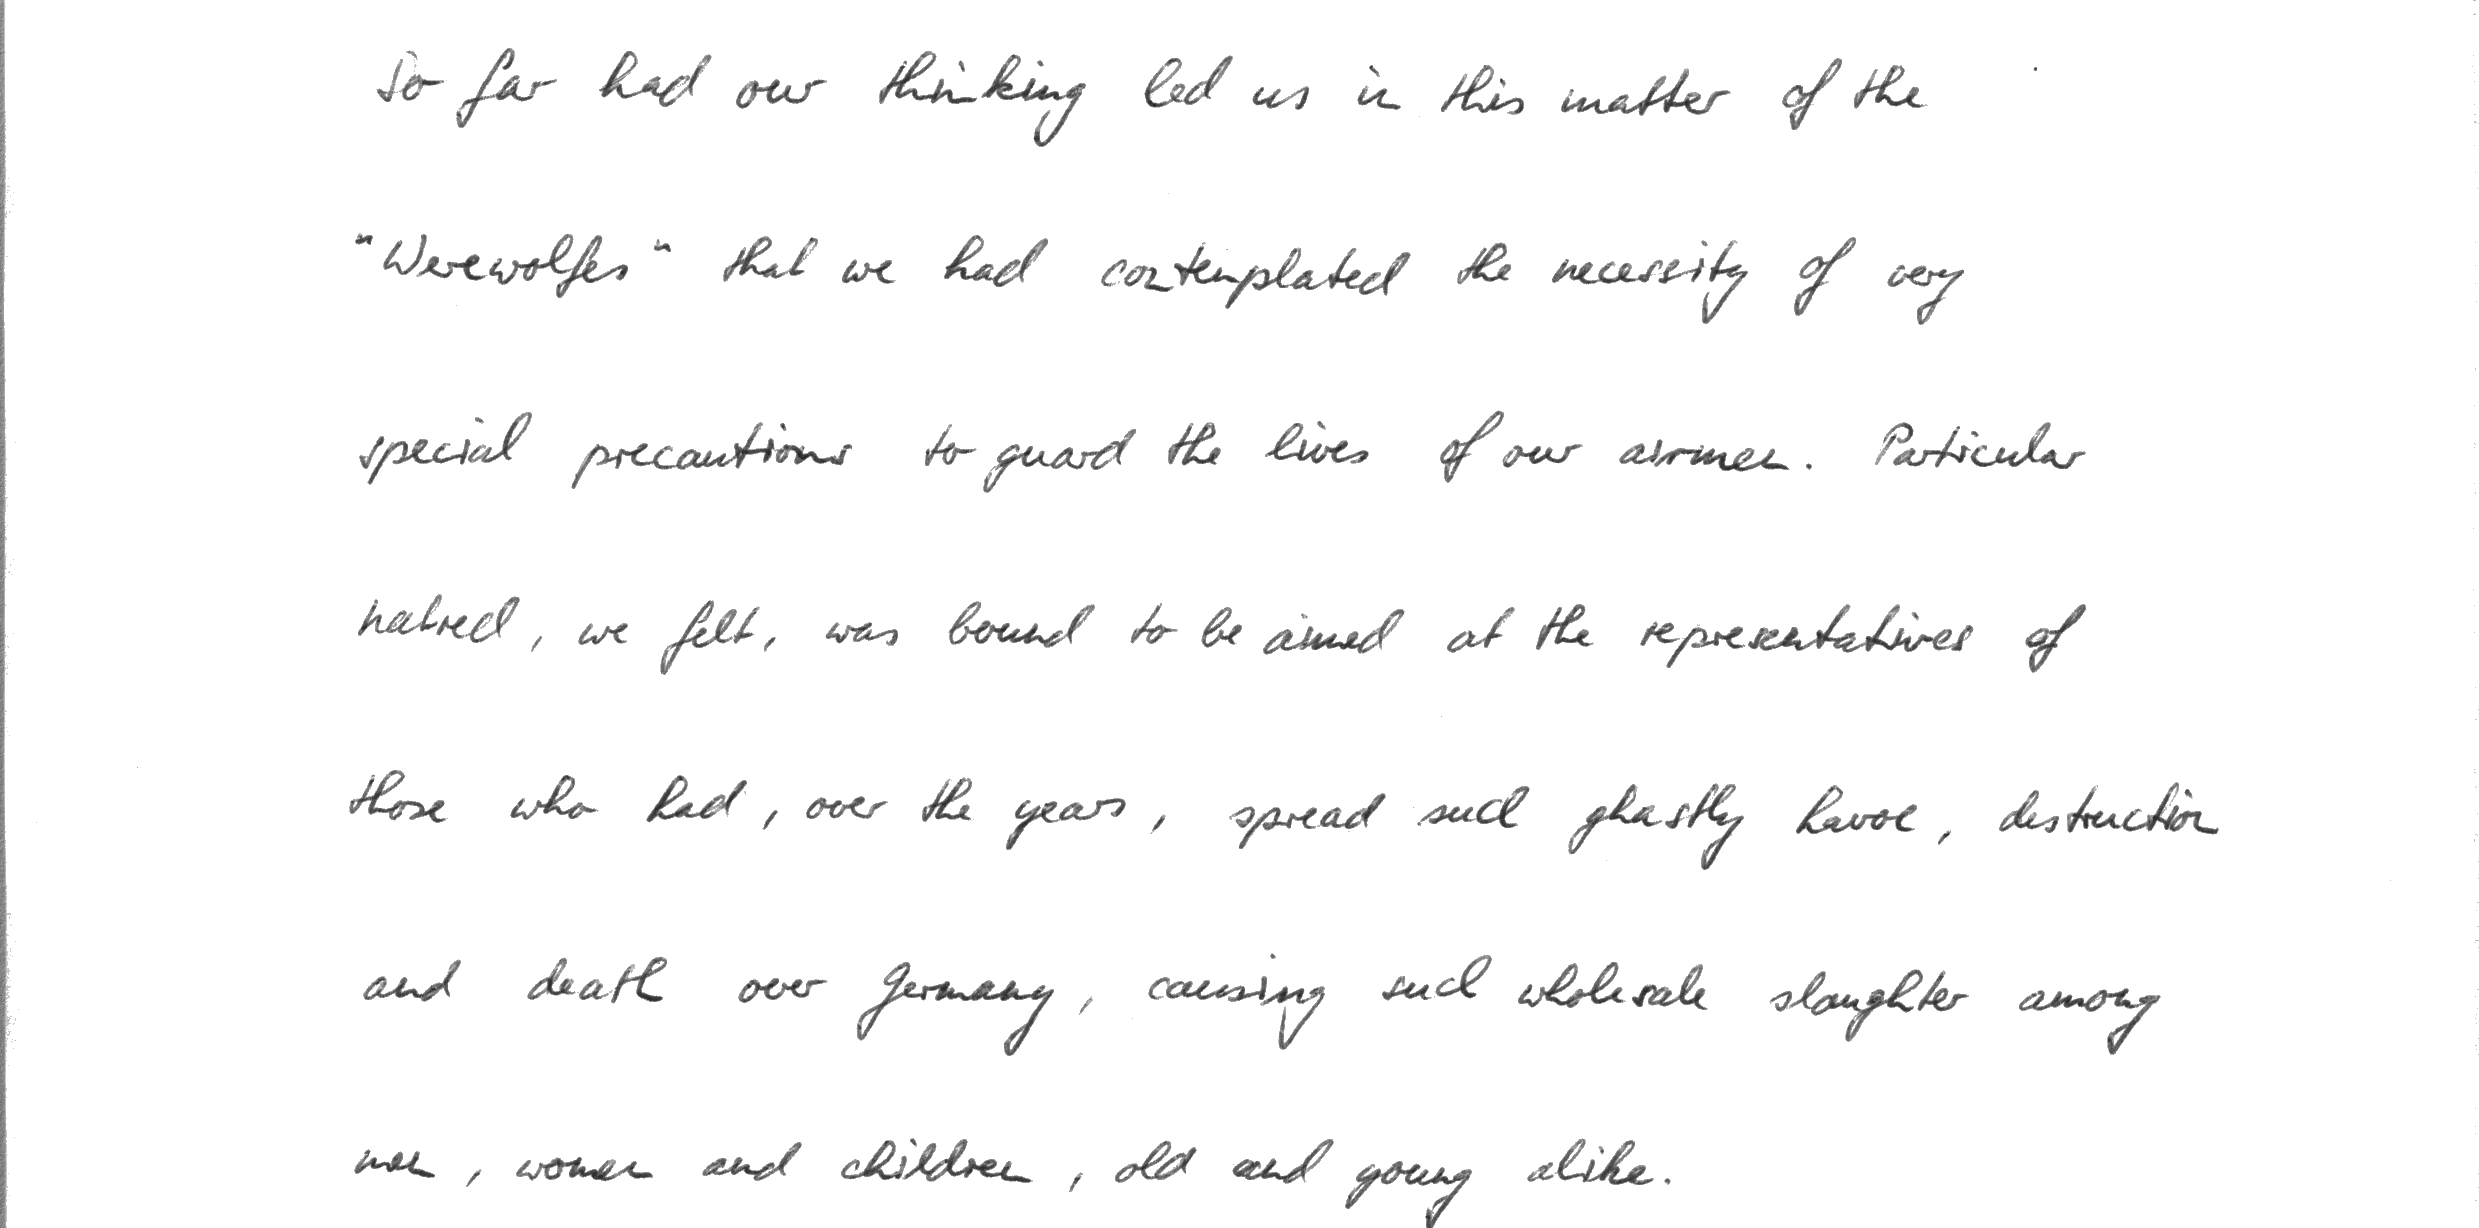 So far had our thinking led us in this matter of the
"Werewolfes" that we had contemplated the necessity of very
special precautions to guard the lives of our airmen. Particular
hatred, we felt, was bound to be aimed at the representatives of
those who had, over the years, spread such ghastly havoc, destruction
and death over Germany, causing such wholesale slaughter among
men, women and children, old and young alike.